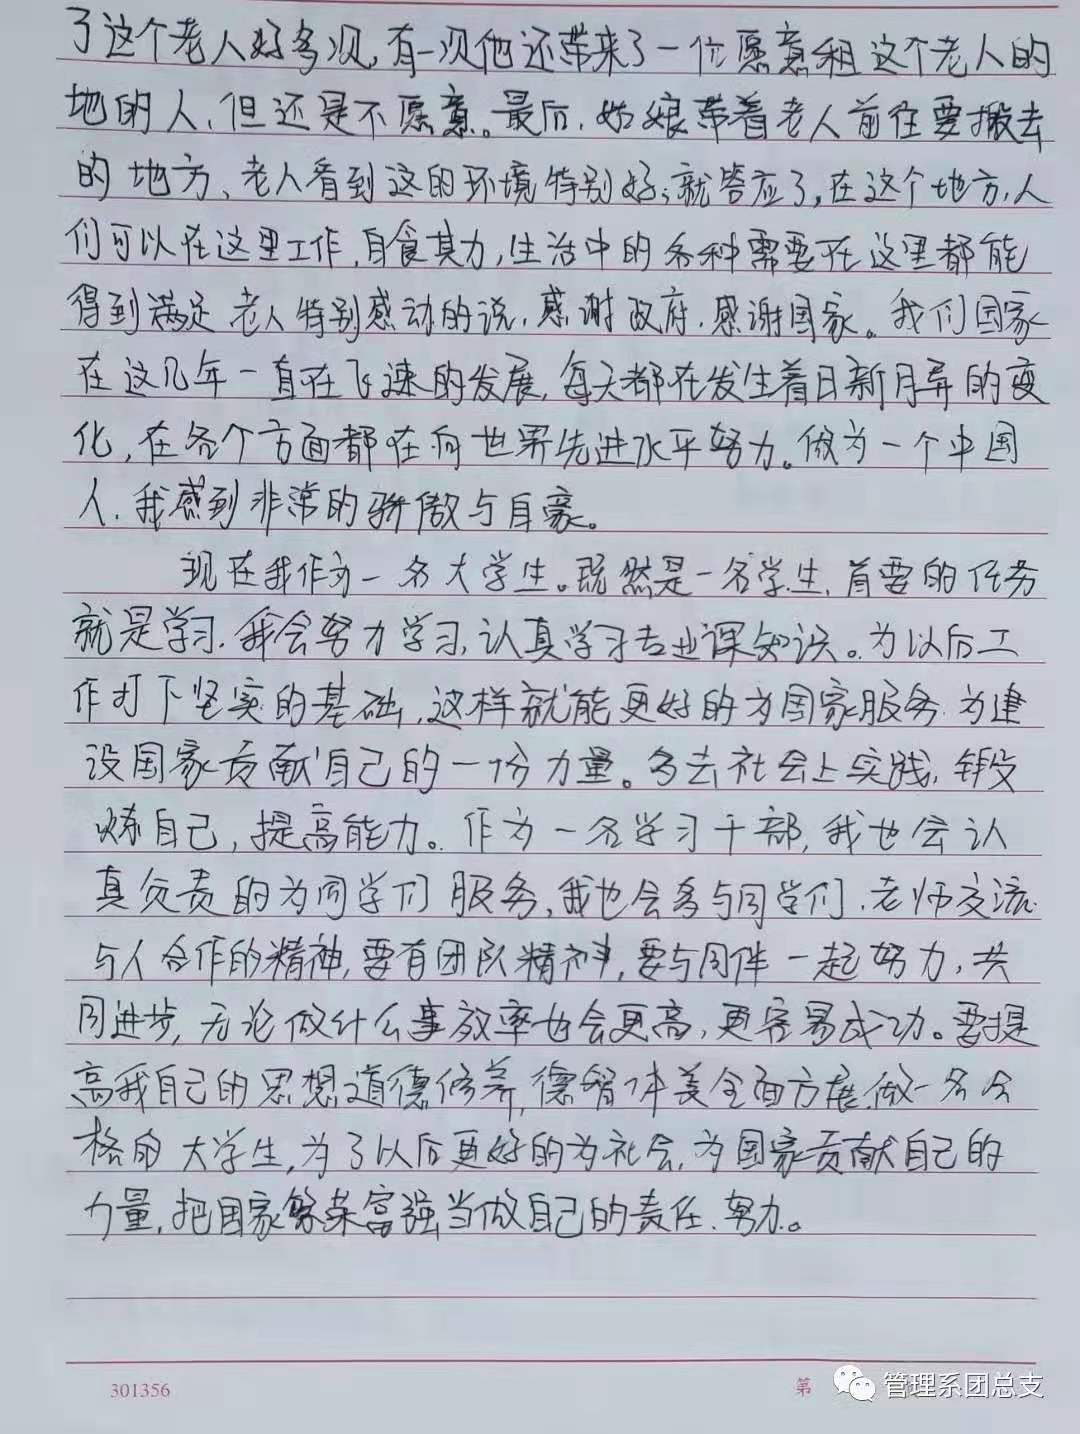 了这个老人好多次，有一次他还带来了一位愿意租这个老人的
地的人，但还是不愿意。最后，姑娘带着老人前往要搬去
的地方、老人看到这的环境特别好，就答应了，在这个地方，人
们可以在这里工作，自食其力，生活中的各种需要在这里都能
得到满足 老人特别感动的说，感谢政府，感谢国家。我们国家
在这几年一直在飞速的发展，每天都在发生着日新月异的变
化，在各个方面都在向世界先进水平努力。做为一个中国
人，我感到非常的骄傲与自豪。
现在我作为一名大学生。既然是一名学生，首要的任务
就是学习，我会努力学习，认真学习专业课知识。为以后工
作打下坚实的基础，这样就能更好的为国家服务，为建
设国家贡献自己的一份力量。多去社会上实践，锻
炼自己，提高能力。作为一名学习干部，我也会认
真负责的为同学们服务，我也会多与同学们，老师交流
与人合作的精神，要有团队精神，要与同伴一起努力，共
同进步，无论做什么事效率也会更高，更容易成功。要提
高我自己的思想道德修养，德智体美全面方展，做一名合
格的大学生，为了以后更好的为社会，为国家贡献自己的
力量，把国家繁荣富强当做自己的责任、努力。
301356
第
管理系团总支